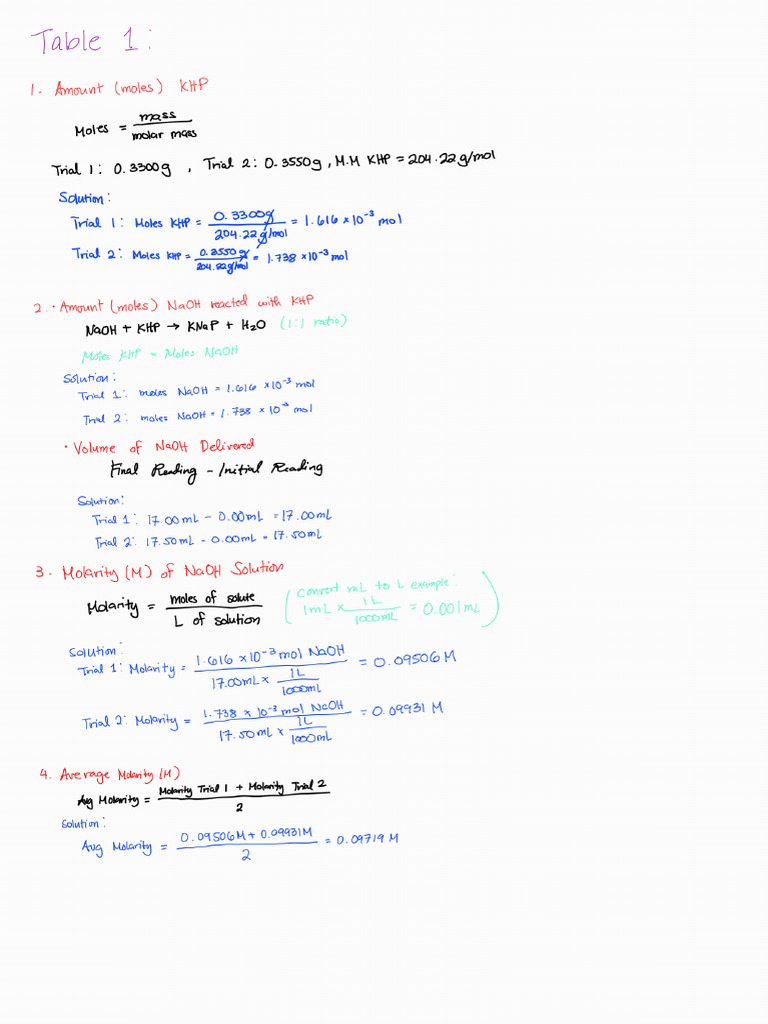 Table 1:
1. Amount (moles) KHP
Moles = mass / molar mass
Trial 1: 0.3300g , Trial 2: 0.3550g, M.M KHP = 204.22g/mol
Solution:
Trial 1: Moles KHP = 0.3300g / 204.22g/mol = 1.616 x 10⁻³ mol
Trial 2: Moles KHP = 0.3550g / 204.22g/mol = 1.738 x 10⁻³ mol
2. • Amount (moles) NaOH reacted with KHP
NaOH + KHP → KNaP + H₂O (1:1 ratio)
Moles KHP = Moles NaOH
Solution:
Trial 1: moles NaOH = 1.616 x 10⁻³ mol
Trial 2: moles NaOH = 1.738 x 10⁻³ mol
• Volume of NaOH Delivered
Final Reading - Initial Reading
Solution:
Trial 1: 17.00mL - 0.00mL = 17.00mL
Trial 2: 17.50mL - 0.00mL = 17.50mL
3. Molarity (M) of NaOH Solution
Molarity = moles of solute / L of solution (convert mL to L example: 1mL x 1L / 1000mL = 0.001mL)
Solution:
Trial 1: Molarity = 1.616 x 10⁻³ mol NaOH / 17.00mL x 1L / 1000mL = 0.09506 M
Trial 2: Molarity = 1.738 x 10⁻³ mol NaOH / 17.50mL x 1L / 1000mL = 0.09931 M
4. Average Molarity (M)
Avg Molarity = Molarity Trial 1 + Molarity Trial 2 / 2
Solution:
Avg Molarity = 0.09506M + 0.09931M / 2 = 0.09719 M